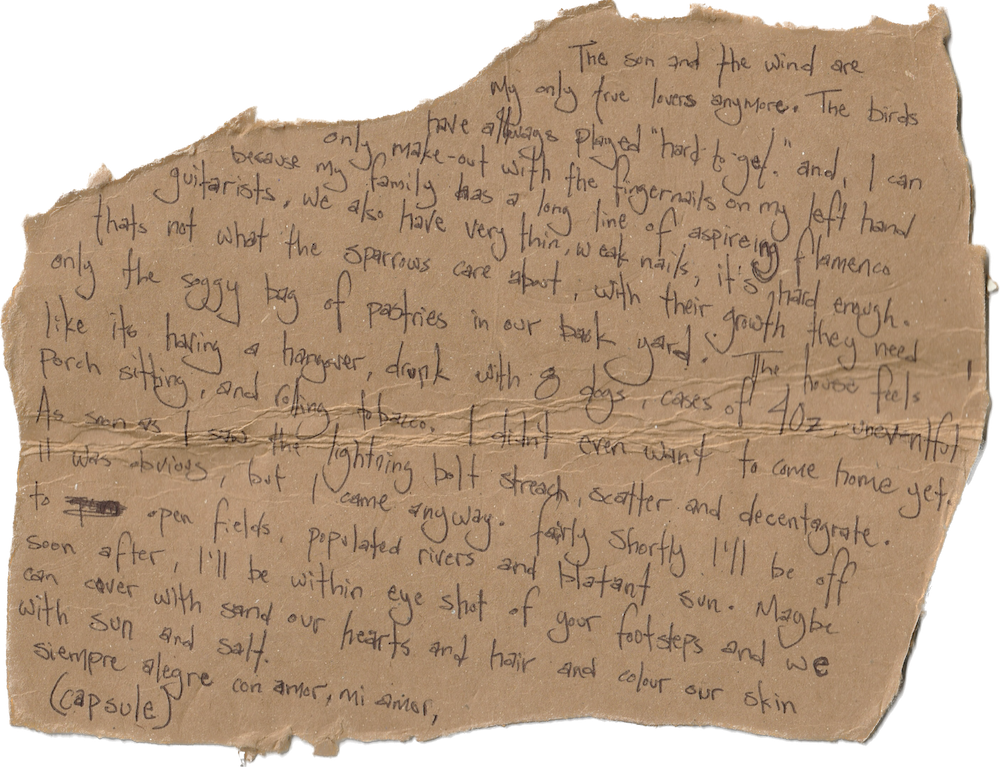 The son and the wind are
My only true lovers anymore. The birds
have allways played "hard-to-get." and, I can
only make-out with the fingernails on my left hand
because my family has a long line of aspireing flamenco
guitarists, we also have very thin, weak nails, it's hard enough.
thats not what the sparrows care about, with their growth they need
only the soggy bag of pastries in our back yard. The house feels
like its having a hangover, drunk with 8 dogs, cases of 40z, uneventful
Porch sitting, and rolling tobacco. I didn't even want to come home yet.
As soon as I saw the lightning bolt streach, scatter and decentagrate.
It was obvious, but I came anyway. fairly shortly I'll be off
to open fields, populated rivers and blatant sun. Maybe
soon after, I'll be within eye shot of your footsteps and we
can cover with sand our hearts and hair and colour our skin
with sun and salt.
siempre alegre con amor, mi amor,
(capsule)